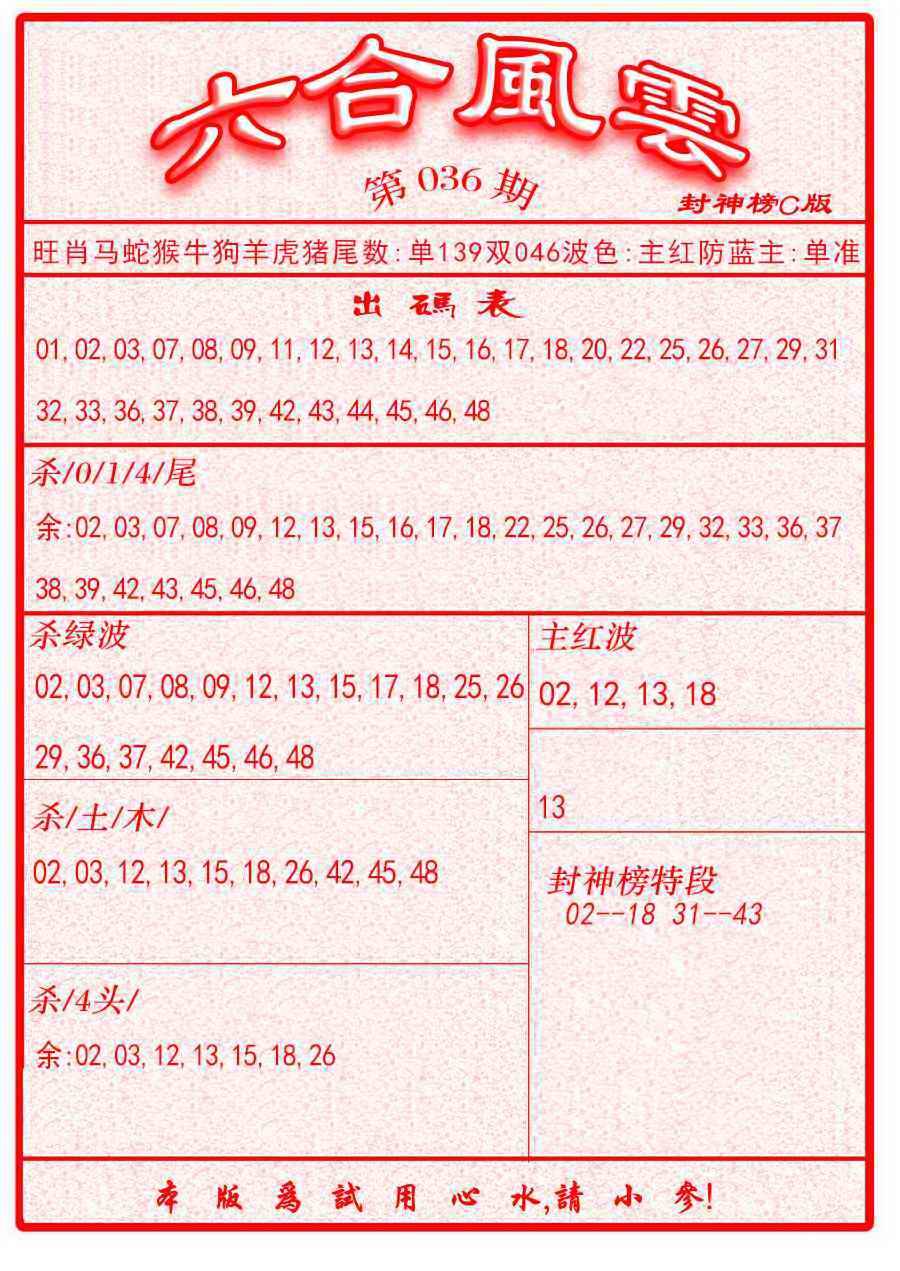 六合風雲
第 036 期
封神榜C版
旺肖马蛇猴牛狗羊虎猪尾数:单139双046波色:主红防蓝主:单准
出碼表
01,02,03,07,08,09,11,12,13,14,15,16,17,18,20,22,25,26,27,29,31
32,33,36,37,38,39,42,43,44,45,46,48
杀/0/1/4/尾
余:02,03,07,08,09,12,13,15,16,17,18,22,25,26,27,29,32,33,36,37
38,39,42,43,45,46,48
杀绿波
02,03,07,08,09,12,13,15,17,18,25,26
29,36,37,42,45,46,48
主红波
02,12,13,18
13
杀/土/木/
02,03,12,13,15,18,26,42,45,48
封神榜特段
02--18 31--43
杀/4头/
余:02,03,12,13,15,18,26
本版爲試用心水,請小參!